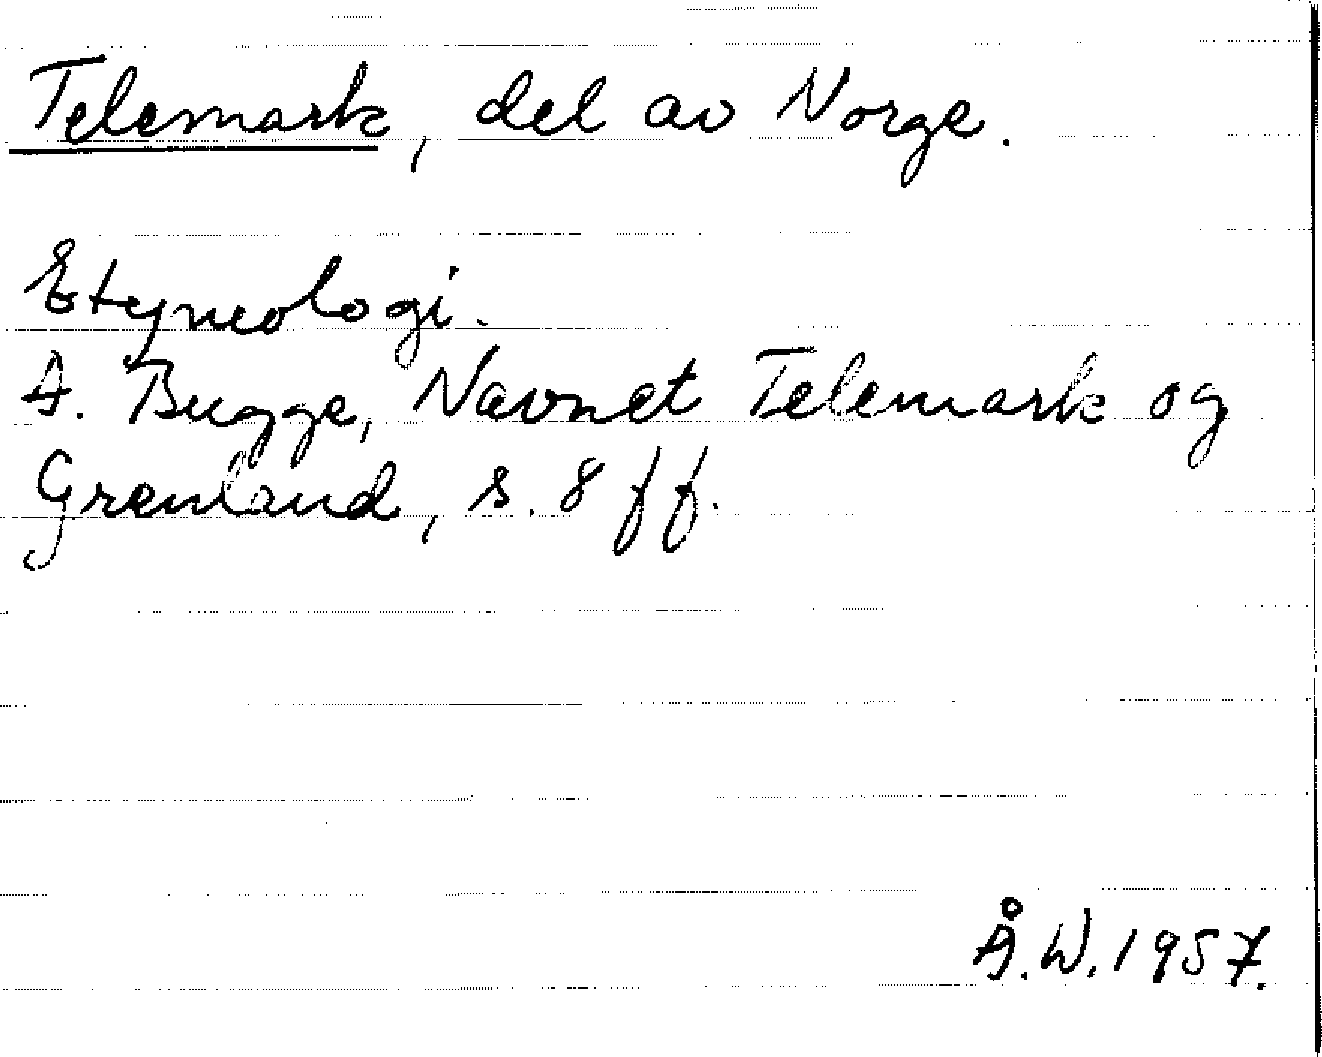 Telemark, del av Norge.
Etymologi.
A. Bugge, Navnet Telemark og
Grenland, s. 8 ff.
Å.W. 1957.